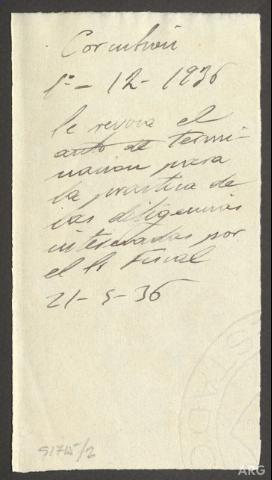 Corcubión
1º - 12 - 1936
Se revoca el
auto de termi-
nacion para
la practica de
las diligencias
interesadas por
el Sr Fiscal
21 - 5 - 36
51715/2
ARG